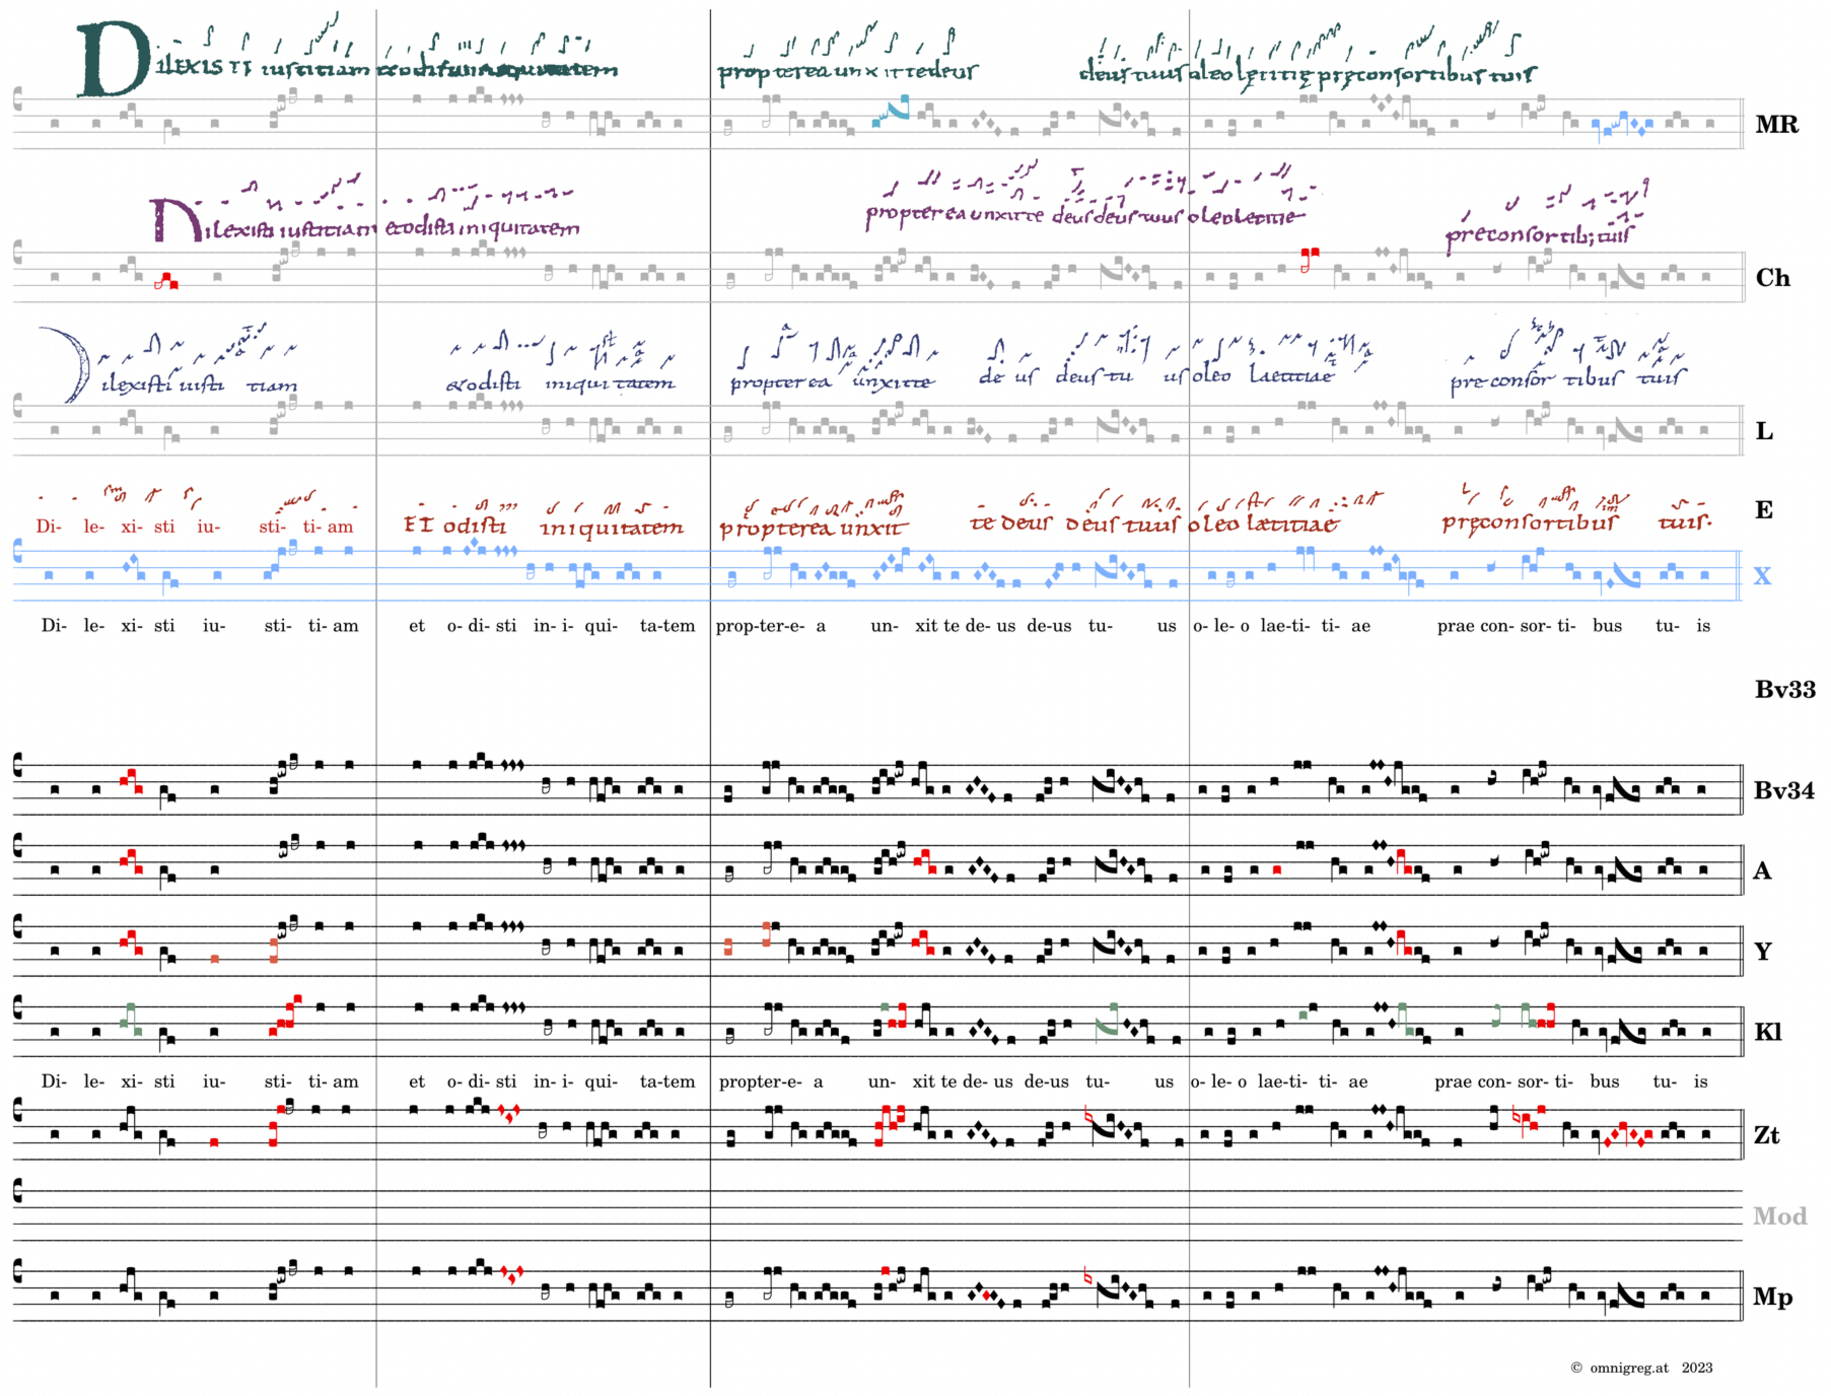 DILEXISTI iustitiam et odisti iniquitatem propterea unxit te deus deus tuus oleo lętitię pręconsortibus tuis
MR
Dilexisti iustitiam et odisti iniquitatem propterea unxit te deus deus tuus oleo letitie
preconsortib; tuis
Ch
Dilexisti iusti tiam et odisti iniquitatem propterea unxit te de us deus tu us oleo laetitiae pre consor tibus tuis
L
Di- le- xi- sti iu- sti- ti- am ET odisti iniquitatem propterea unxit te deus deus tuus oleo lætitiae pręconsortibus tuis.
E
X
Di- le- xi- sti iu- sti- ti- am et o- di- sti in- i- qui- ta-tem prop-ter-e- a un- xit te de- us de-us tu- us o- le- o lae-ti- ti- ae prae con- sor- ti- bus tu- is
Bv33
Bv34
A
Y
Kl
Di- le- xi- sti iu- sti- ti- am et o- di- sti in- i- qui- ta-tem propter-e- a un- xit te de- us de-us tu- us o- le- o lae-ti- ti- ae prae con- sor- ti- bus tu- is
Zt
Mod
Mp
© omnigreg.at 2023